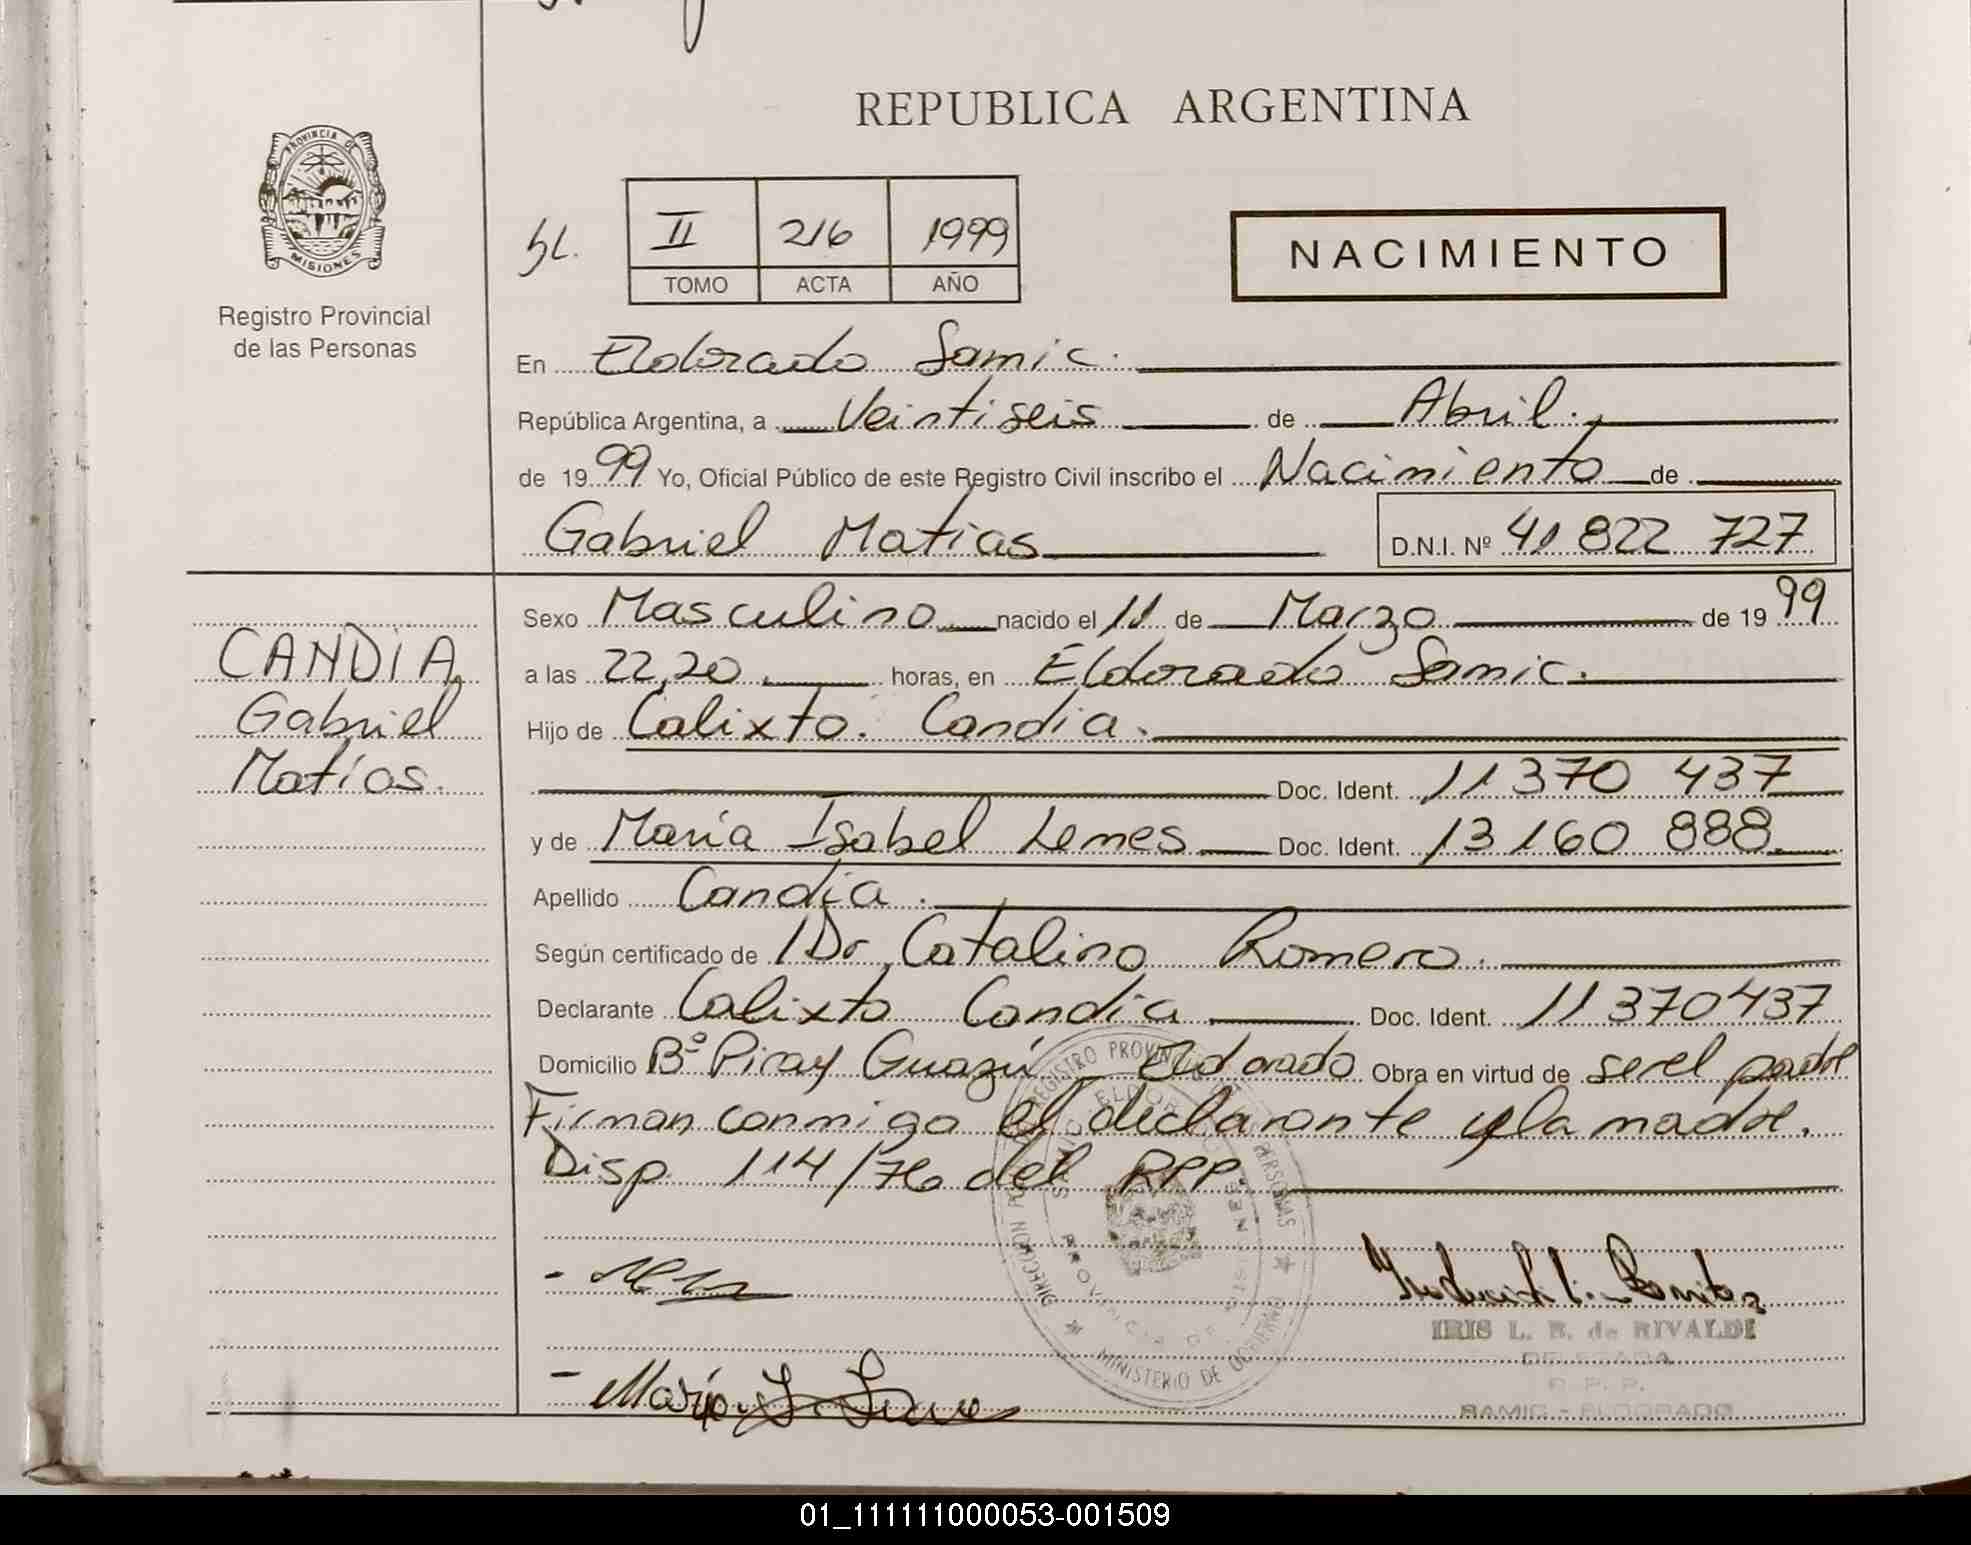 REPUBLICA ARGENTINA
PROVINCIA DE
MISIONES
Registro Provincial
de las Personas
II 216 1999
TOMO ACTA AÑO
NACIMIENTO
En Eldorado Samic.
República Argentina, a Veintiseis de Abril.
de 1999 Yo, Oficial Público de este Registro Civil inscribo el Nacimiento de
Gabriel Matias D.N.I. Nº 41 822 727
CANDIA,
Gabriel
Matías.
Sexo Masculino nacido el 11 de Marzo de 1999
a las 22,20 horas, en Eldorado Samic.
Hijo de Calixto. Candia.
Doc. Ident. 11 370 437
y de María Isabel Lemes Doc. Ident. 13 160 888
Apellido Candia.
Según certificado de Dr Catalino Romero.
Declarante Calixto Candia Doc. Ident. 11 370437
Domicilio Bº Piray Guazú - Eldorado Obra en virtud de ser el padre
Firman conmigo el declarante y la madre.
Disp. 114/76 del RPP
IRIS L. B. de RIVALDI
DELEGADA
R. P. P.
SAMIC - ELDORADO
01_111111000053-001509